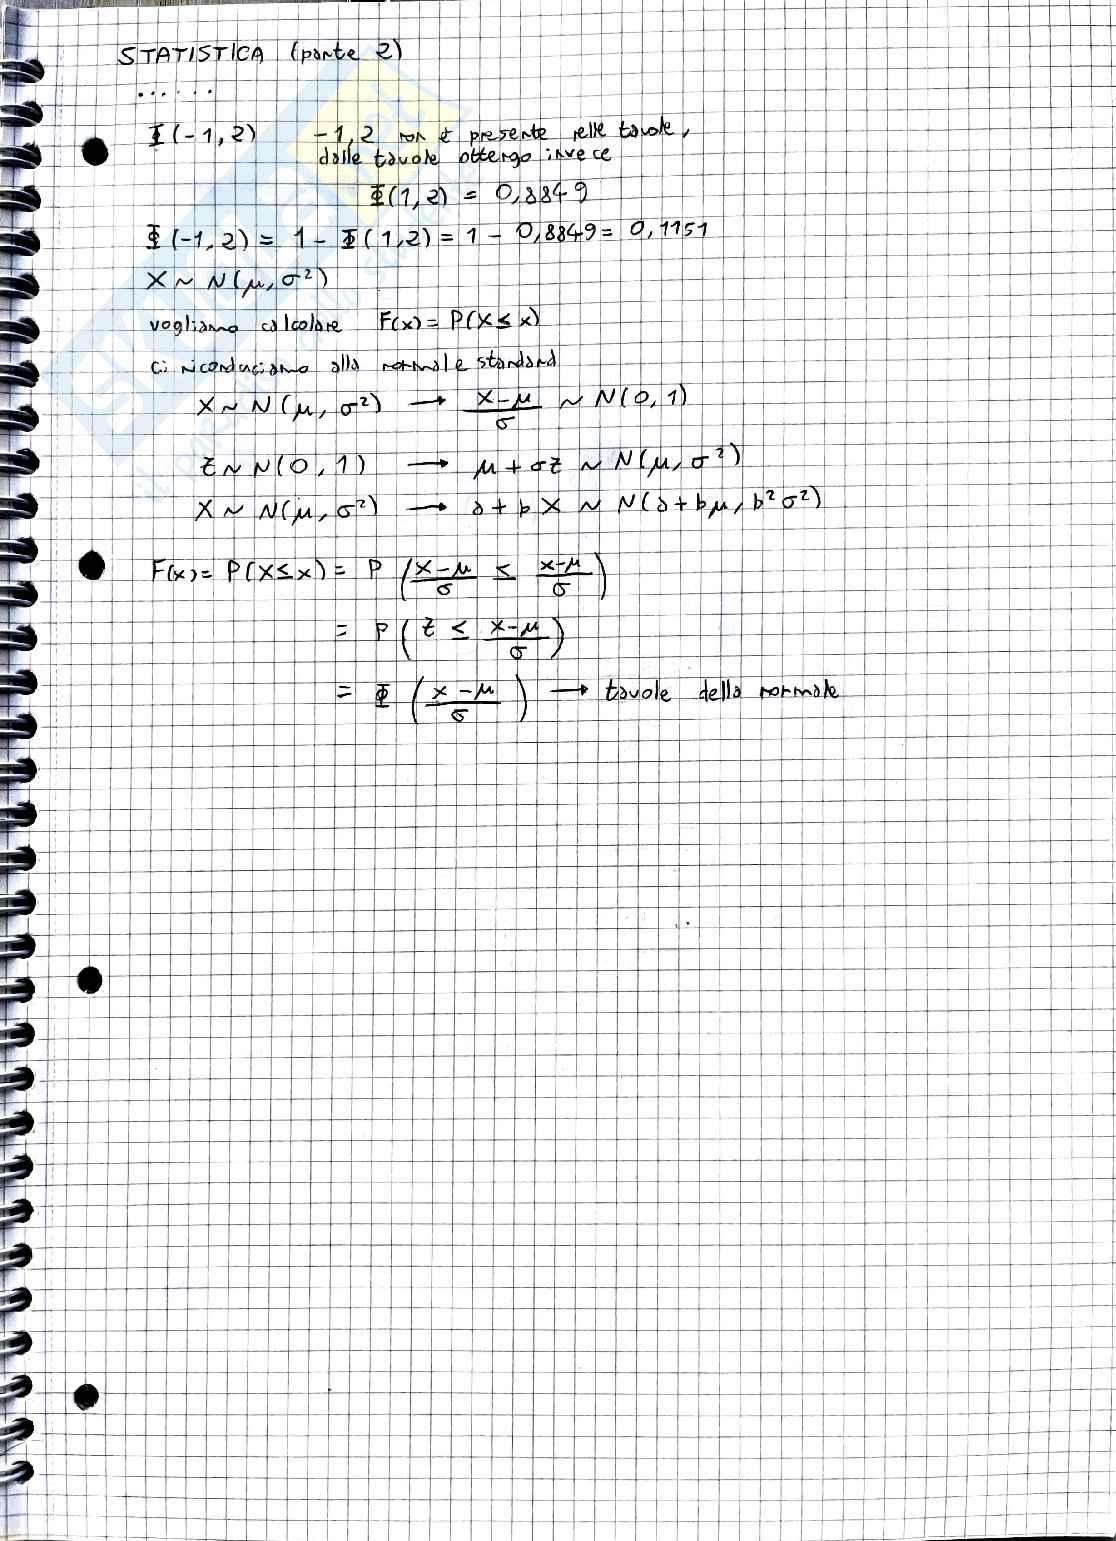 STATISTICA (parte 2)
......
Φ(-1,2) -1,2 non è presente nelle tavole,
dalle tavole ottengo invece
Φ(1,2) = 0,8849
Φ(-1,2) = 1 - Φ(1,2) = 1 - 0,8849 = 0,1151
X ~ N(μ, σ²)
vogliamo calcolare F(x) = P(X ≤ x)
ci riconduciamo alla normale standard
X ~ N(μ, σ²) → (X-μ)/σ ~ N(0,1)
Z ~ N(0,1) → μ + σZ ~ N(μ, σ²)
X ~ N(μ, σ²) → a + bX ~ N(a + bμ, b²σ²)
F(x) = P(X ≤ x) = P((X-μ)/σ ≤ (x-μ)/σ)
= P(Z ≤ (x-μ)/σ)
= Φ((x-μ)/σ) → tavole della normale